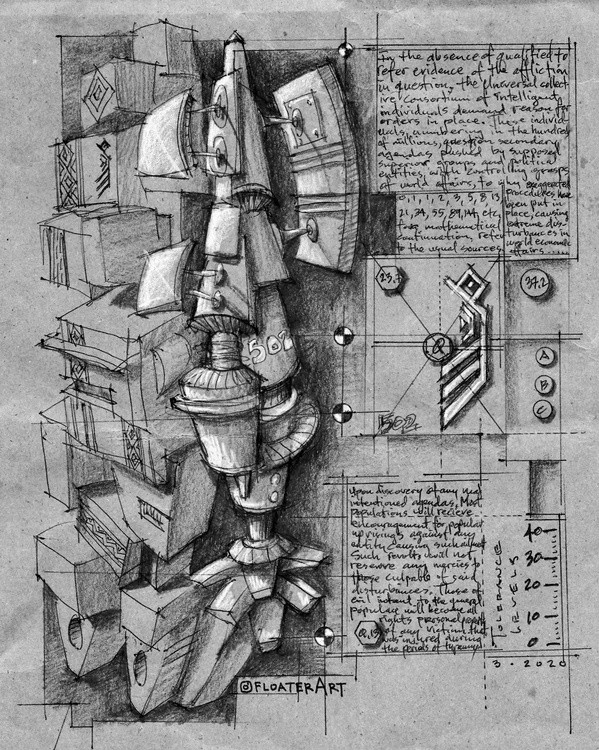 In the absence of qualified to
refer evidence of the affliction
in question, the Universal collect-
ive consortium of Intelligent
individuals demand reason for
orders in place. These individ-
uals, numbering in the hundreds
of millions, question secondary
agendas pushed by supposed
superior groups and political
entities, with controlling groups
of world affairs, to why exaggerated
procedures have
0, 1, 1, 2, 3, 5, 8, 13, been put in
21, 34, 55, 89, 144, etc, place, causing
mathematical extreme dis-
continuation, refer turbances in
to the usual sources world economic
affairs.....
23.7
37.2
R
A
B
C
502
502
Upon discovery of any
intentioned agendas, Most
populations will recieve
encouragement for popular
uprisings against any
entity causing such
Such revolts will not
reserve any mercies to
those culpable of said
disturbances. Those of
evil intent to the general
populace will become all
rights personal
of any victim that
was injured during
the periods of tyranny
40
30
20
10
0
TOLERANCE
LEVELS
3 . 2020
@FLOATERART